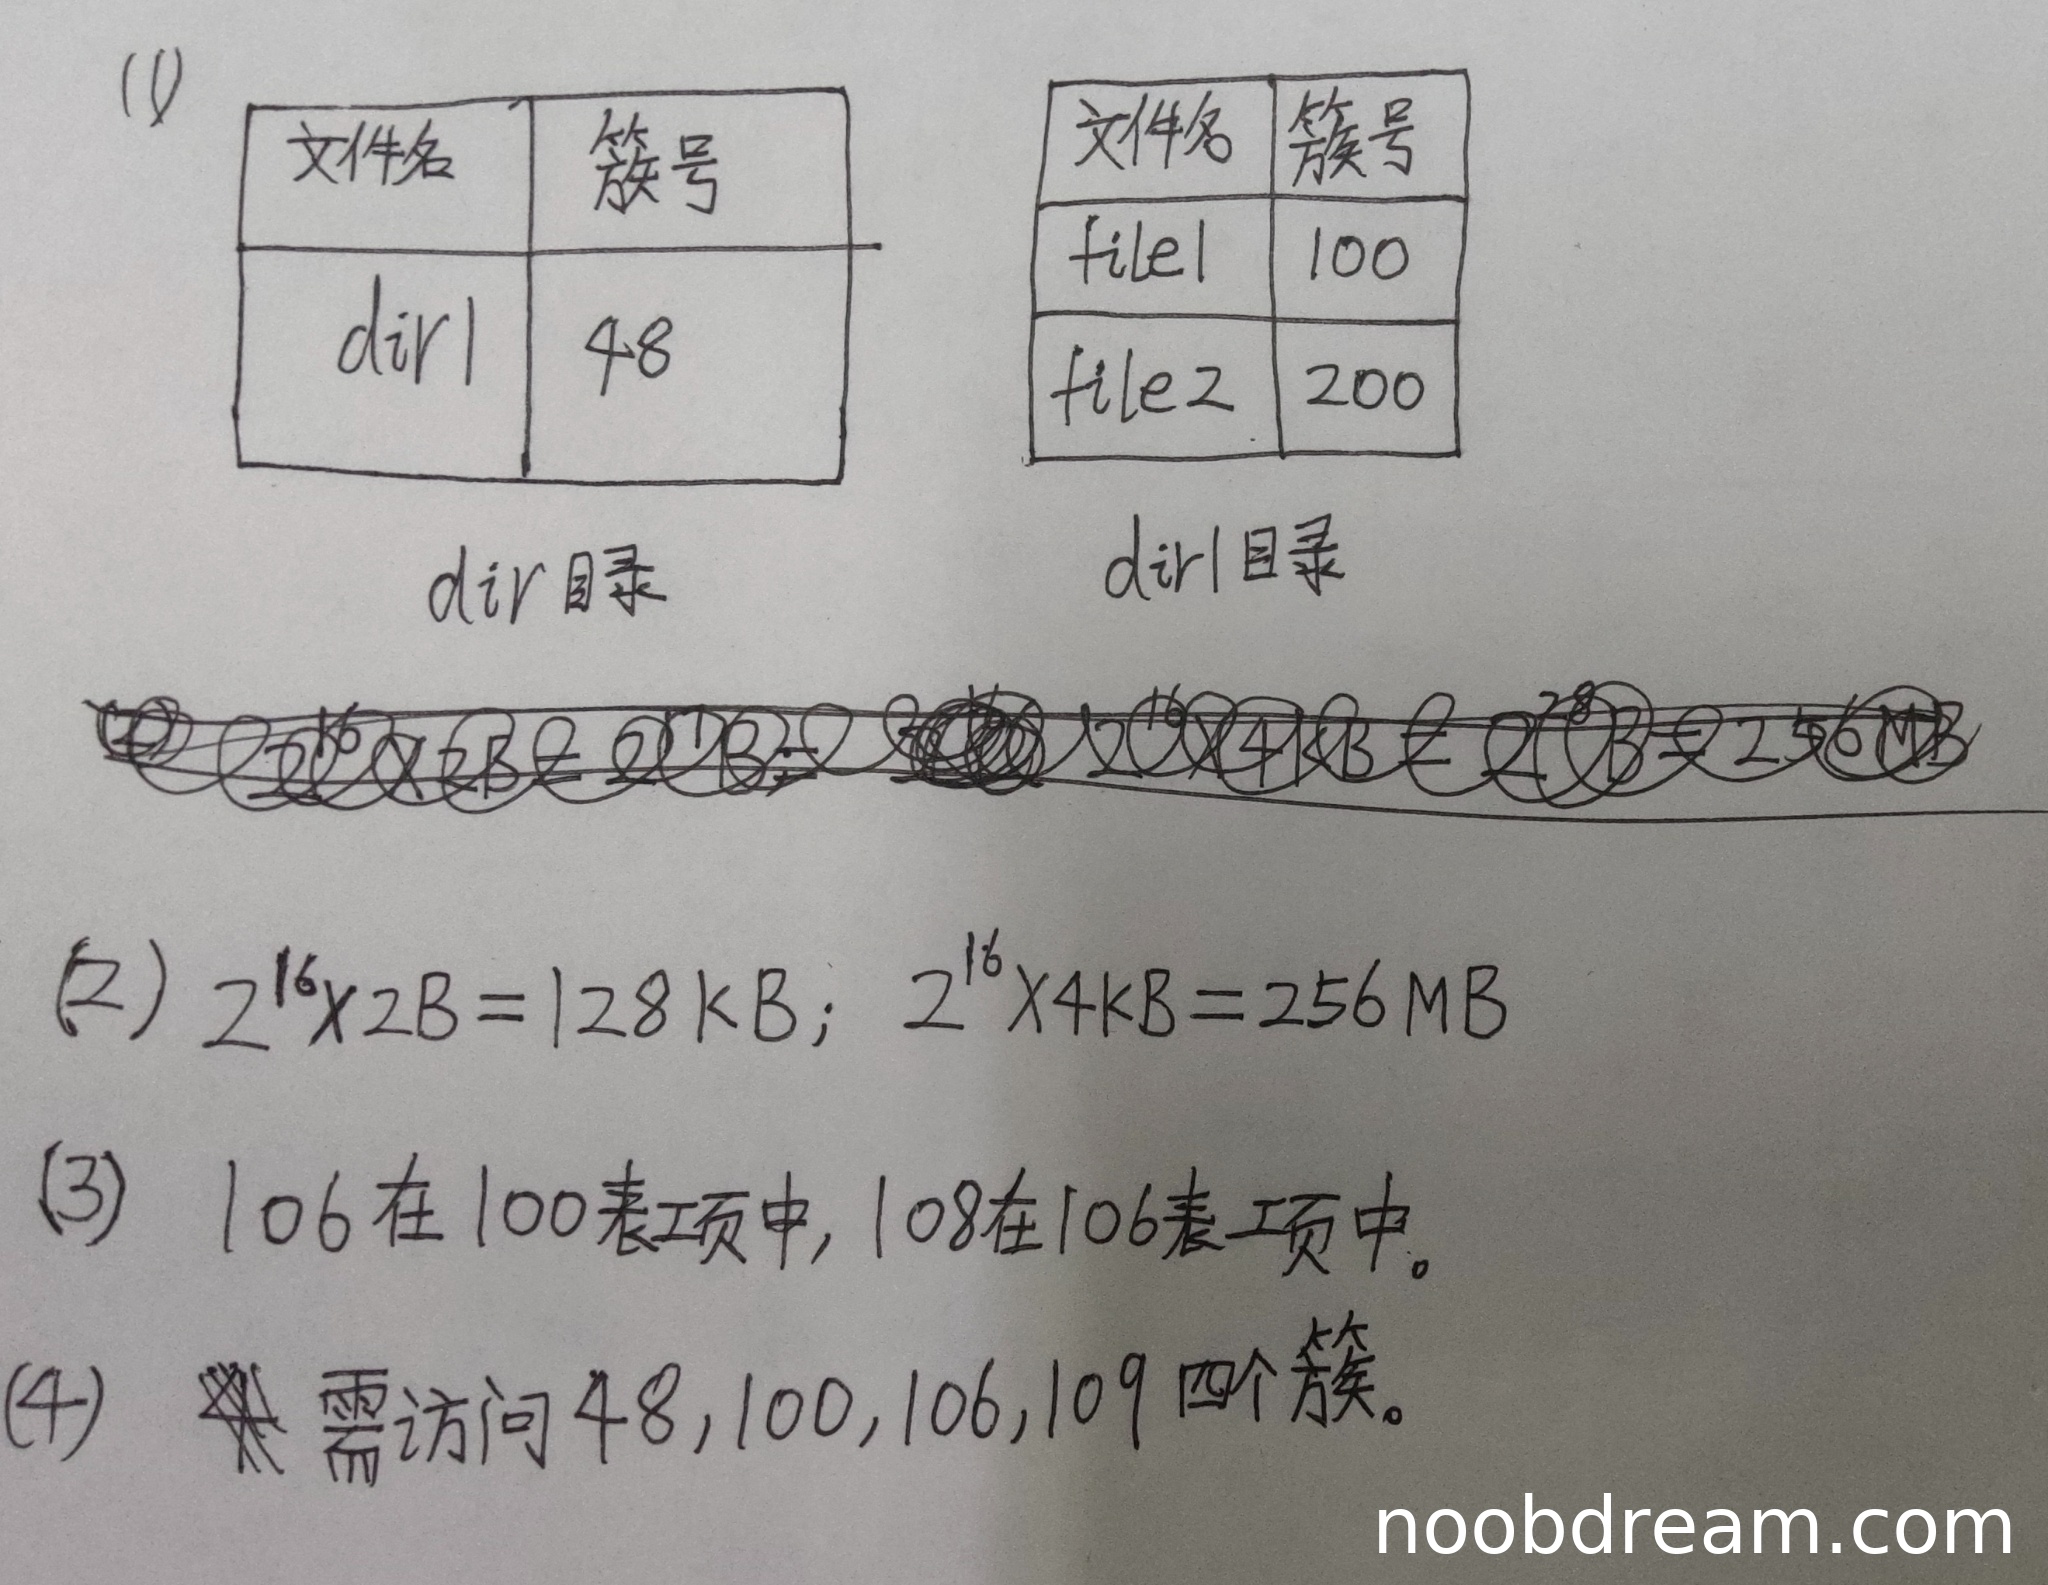 (1)
文件名 簇号
dir1 48
dir目录
文件名 簇号
file1 100
file2 200
dir1目录
2¹⁶×2B = 2¹⁷B = 2¹⁶×4KB = 2²⁸B = 256MB
(2) 2¹⁶×2B=128KB; 2¹⁶×4KB=256MB
(3) 106在100表项中,108在106表项中。
(4) 需访问48,100,106,109四个簇。
noobdream.com